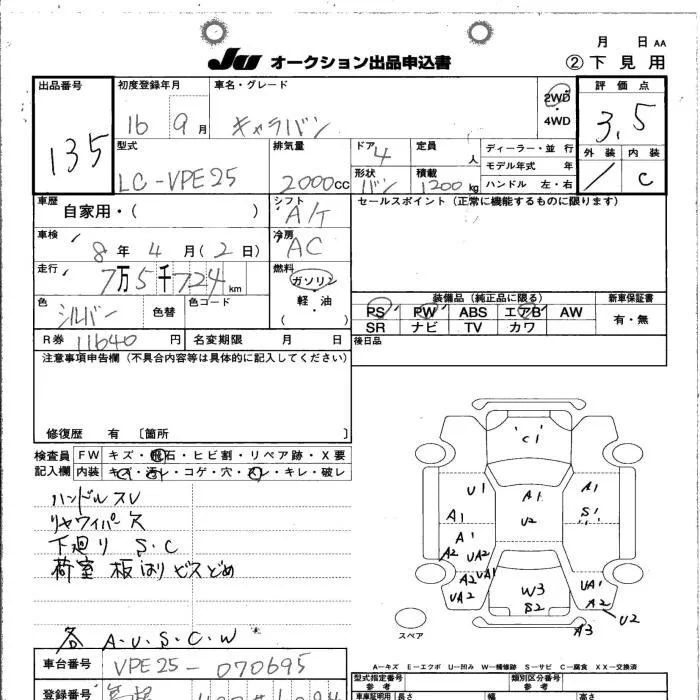 月 日 AA
JU オークション出品申込書 ②下見用
出品番号 初度登録年月 車名・グレード 2WD 評価点
135 16 9月 キャラバン 4WD 3.5
型式 排気量 ドア 定員 ディーラー・並行 外装 内装
LC-VPE25 2000cc 4 人 モデル年式 年 / C
形状 積載 ハンドル 左・右
バン 1200kg
車歴 シフト セールスポイント(正常に機能するものに限ります)
自家用・( ) A/T
車検 冷房
8年4月(2日) AC
走行 燃料
7万5千724km ガソリン
色 色コード 軽・油
シルバー 色替 ( )
装備品(純正品に限る) 新車保証書
PS PW ABS エアB AW 有・無
SR ナビ TV カワ
R券 11640円 名変期限 月 日 後日品
注意事項申告欄(不具合内容等は具体的に記入してください)
修復歴 有 〔箇所 〕
検査員 FW キズ・飛石・ヒビ割・リペア跡・X要
記入欄 内装 キズ・汚レ・コゲ・穴・スレ・キレ・破レ
ハンドルスレ
リヤワイパー欠
下廻り S.C
荷室 板はりビスどめ
各 A.U.S.C.W
C1
U1 A1 A1
A1 U2 S1
A1
A2 UA2
A2 UA1 UA1
UA2 W3 A2
S2 U2
A3
スペア
A-キズ E-エクボ U-凹み W-補修跡 S-サビ C-腐食 XX-交換済
車台番号 VPE25-070695
型式指定番号 類別区分番号
参考 参考
登録番号
車庫証明用 長さ 幅 高さ